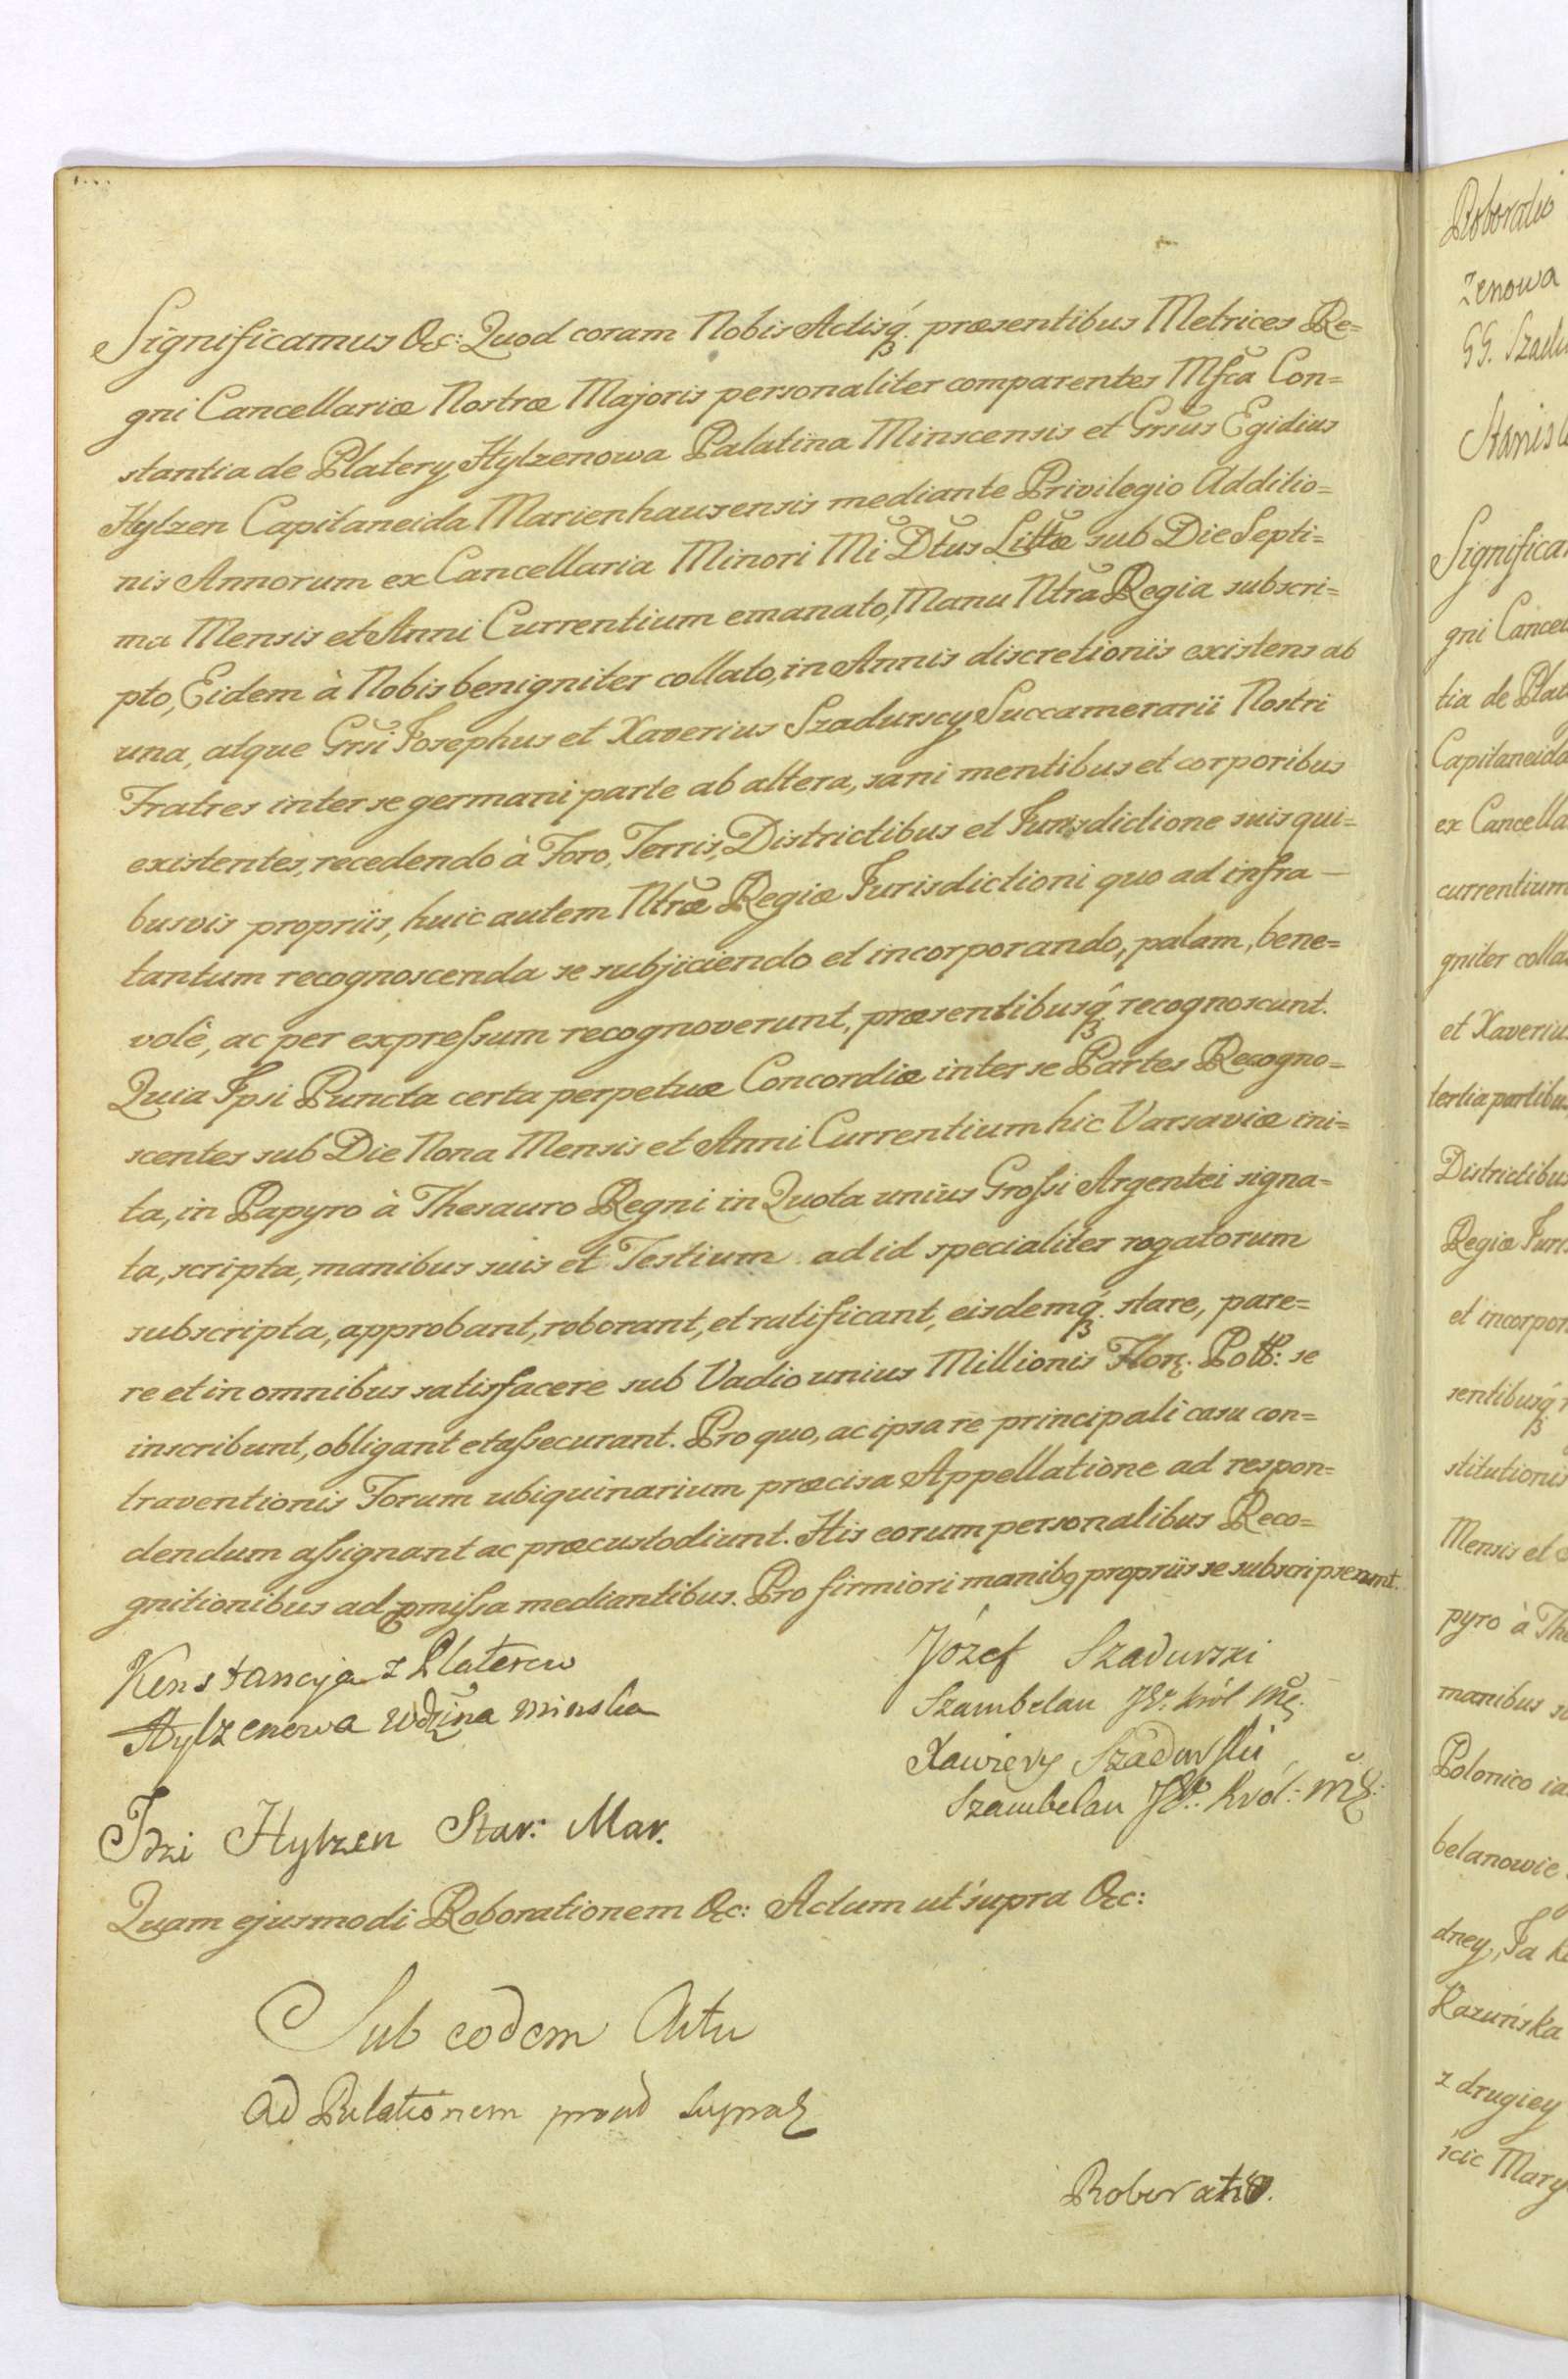 Significamus &c: Quod coram Nobis Actisq́ præsentibus Metrices Re=
gni Cancellariæ Nostræ Majoris personaliter comparentes Mfca Con=
stantia de Platery Hylzenowa Palatina Minscensis et Grsus Egidius
Hylzen Capitaneida Marienhausensis mediante Privilegio Additio=
nis Annorum ex Cancellaria Minori Mi Dtus Littæ sub Die Septi=
ma Mensis et Anni Currentium emanato, Manu Ntra Regia subscri=
pto, Eidem à Nobis benigniter collato, in Annis discretionis existens ab
una, atque Grsi Josephus et Xaverius Szadurscy Succamerarii Nostri
Fratres inter se germani parte ab altera, sani mentibus et corporibus
existentes, recedendo à Foro, Terris, Districtibus et Jurisdictione suis qui=
busvis propriis, huic autem Ntræ Regiæ Jurisdictioni quo ad infra —
tantum recognoscenda se subjiciendo et incorporando, palam, bene=
volè, ac per expressum recognoverunt, præsentibusq́ recognoscunt.
Quia Ipsi Puncta certa perpetuæ Concordiæ inter se Partes Recogno=
scentes sub Die Nona Mensis et Anni Currentium hic Varsaviæ ini=
ta, in Papyro à Thesauro Regni in Quota unius Grossi Argentei signa=
ta, scripta, manibus suis et Testium ad id specialiter rogatorum
subscripta, approbant, roborant, et ratificant, eisdemq́ stare, pare=
re et in omnibus satisfacere sub Vadio unius Millionis Flor. Poll: se
inscribunt, obligant et assecurant. Pro quo, ac ipsa re principali casu con=
traventionis Forum ubiquinarium præcisa Appellatione ad respon=
dendum assignant ac præcustodiunt. His eorum personalibus Reco=
gnitionibus ad pmissa mediantibus. Pro firmiori manibq propriis se subscripserunt.
Konstancyja z Platerow
Hylzenowa Wdzina Minska
Józef Szadurski
Szambelan J K. król Mci
Xawiery Szadurski
Szambelan JK: Król: Mci:
Idzi Hylzen Star: Mar.
Quam ejusmodi Roborationem &c: Actum ut supra &c:
Sub eodem Actu
Ad Relationem proud supra
Roboratio.
Roboratio
zenowa
GG. Szadu
Stanis
Significa
gni Cancel
tia de Plat
Capitaneida
ex Cancella
currentium
gniter colla
et Xaveriu
tertia partibus
Districtibus
Regiæ Juris
et incorpor
sentibusq́ r
stitutionis
Mensis et
pyro à The
manibus su
Polonico ia
belanowie
dney, Ja K
Kazuńska
z drugiey
icic Mary